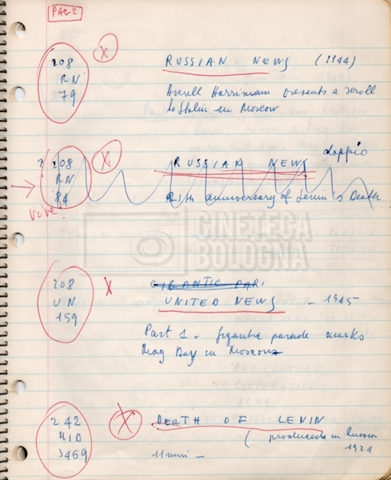 PAGE 2
208 X RUSSIAN NEWS (1944)
RN Averell Harriman presents a scroll
79 to Stalin in Moscow
2 208 X RUSSIAN NEWS doppio
RN
84 anniversary of Lenin's Death
CINETECA
BOLOGNA
208 X GIGANTIC PAR
UN UNITED NEWS - 1945
159
Part 1 - gigantic parade marks
May Day in Moscow
242 X DEATH OF LENIN
MID (produced in Russia
3469 11 min - 1924